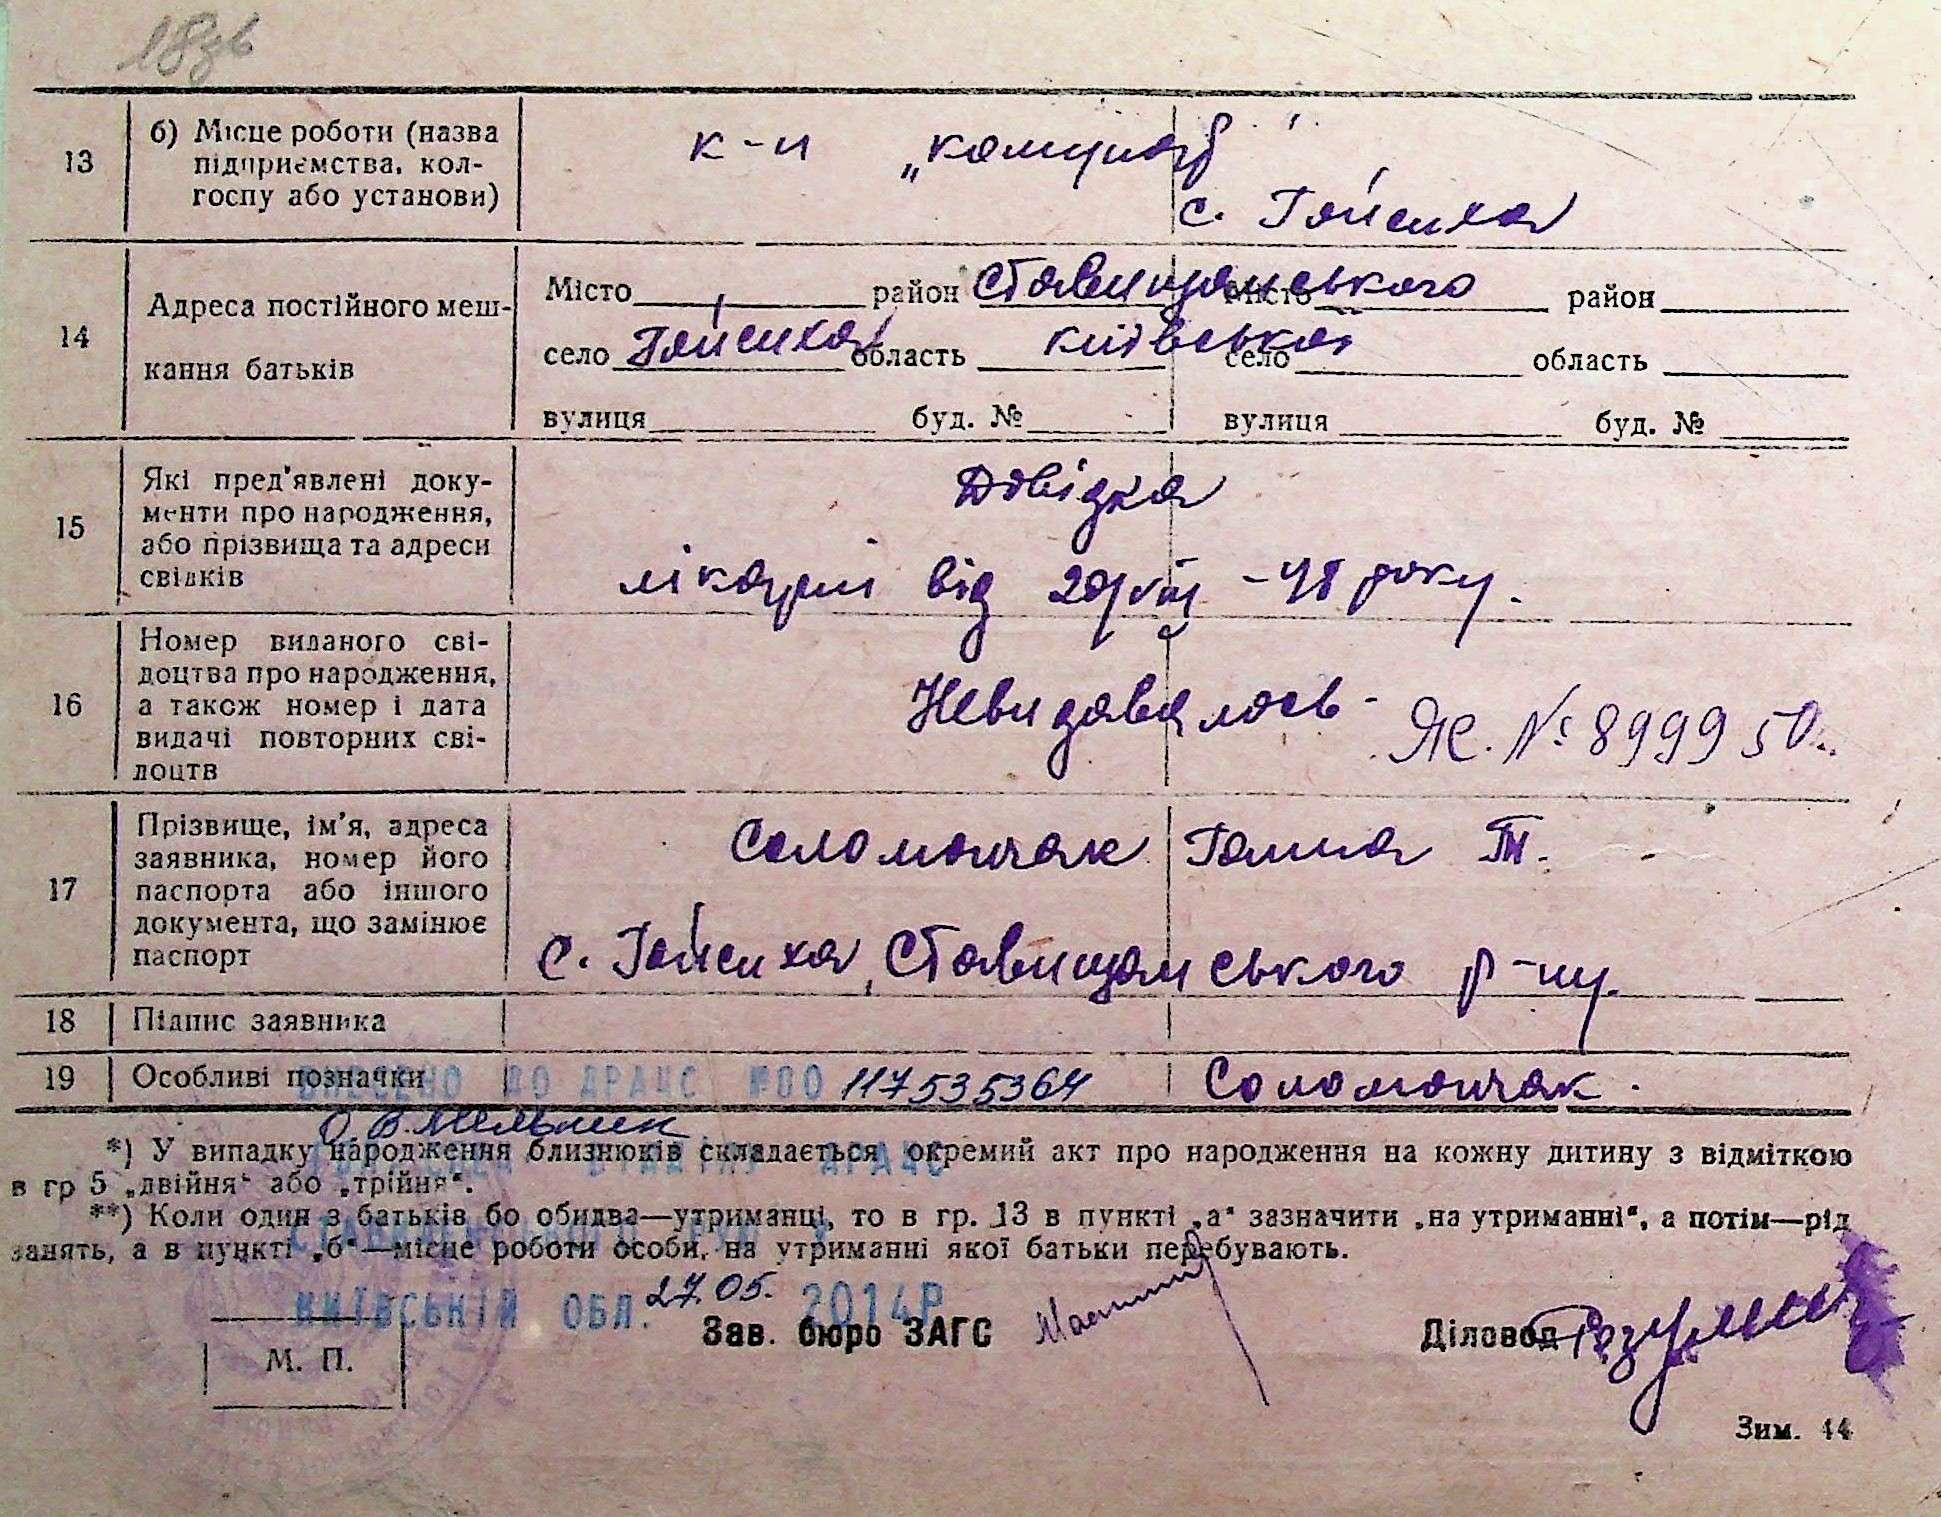 13 б) Місце роботи (назва підприємства, колгоспу або установи)
к-п „комунар"
с. Гайсиха
14 Адреса постійного мешкання батьків
Місто район Ставищанського Місто район
село Гайсиха область Київська село область
вулиця буд. № вулиця буд. №
15 Які пред'явлені документи про народження, або прізвища та адреси свідків
Довідка
лікарні від 29/VIII -48 року.
16 Номер виданого свідоцтва про народження, а також номер і дата видачі повторних свідоцтв
Невидавалось - ЯС. № 899950
17 Прізвище, ім'я, адреса заявника, номер його паспорта або іншого документа, що замінює паспорт
Соломончак Ганна Т.
с. Гайсиха, Ставищанського р-ну.
18 Підпис заявника
19 Особливі позначки
ВНЕСЕНО ДО ДРАЦС №00 117535364 Соломончак.
О.В.Мельник
*) У випадку народження близнюків складається окремий акт про народження на кожну дитину з відміткою
в гр 5 „двійня“ або „трійня“.
**) Коли один з батьків бо обидва—утриманці, то в гр. 13 в пункті „а“ зазначити „на утриманні“, а потім—рід
занять, а в пункті „б“—місце роботи особи, на утриманні якої батьки перебувають.
КИЇВСЬКІЙ ОБЛ. 27.05. 2014Р
Зав. бюро ЗАГС
Діловод
М. П.
Зим. 44